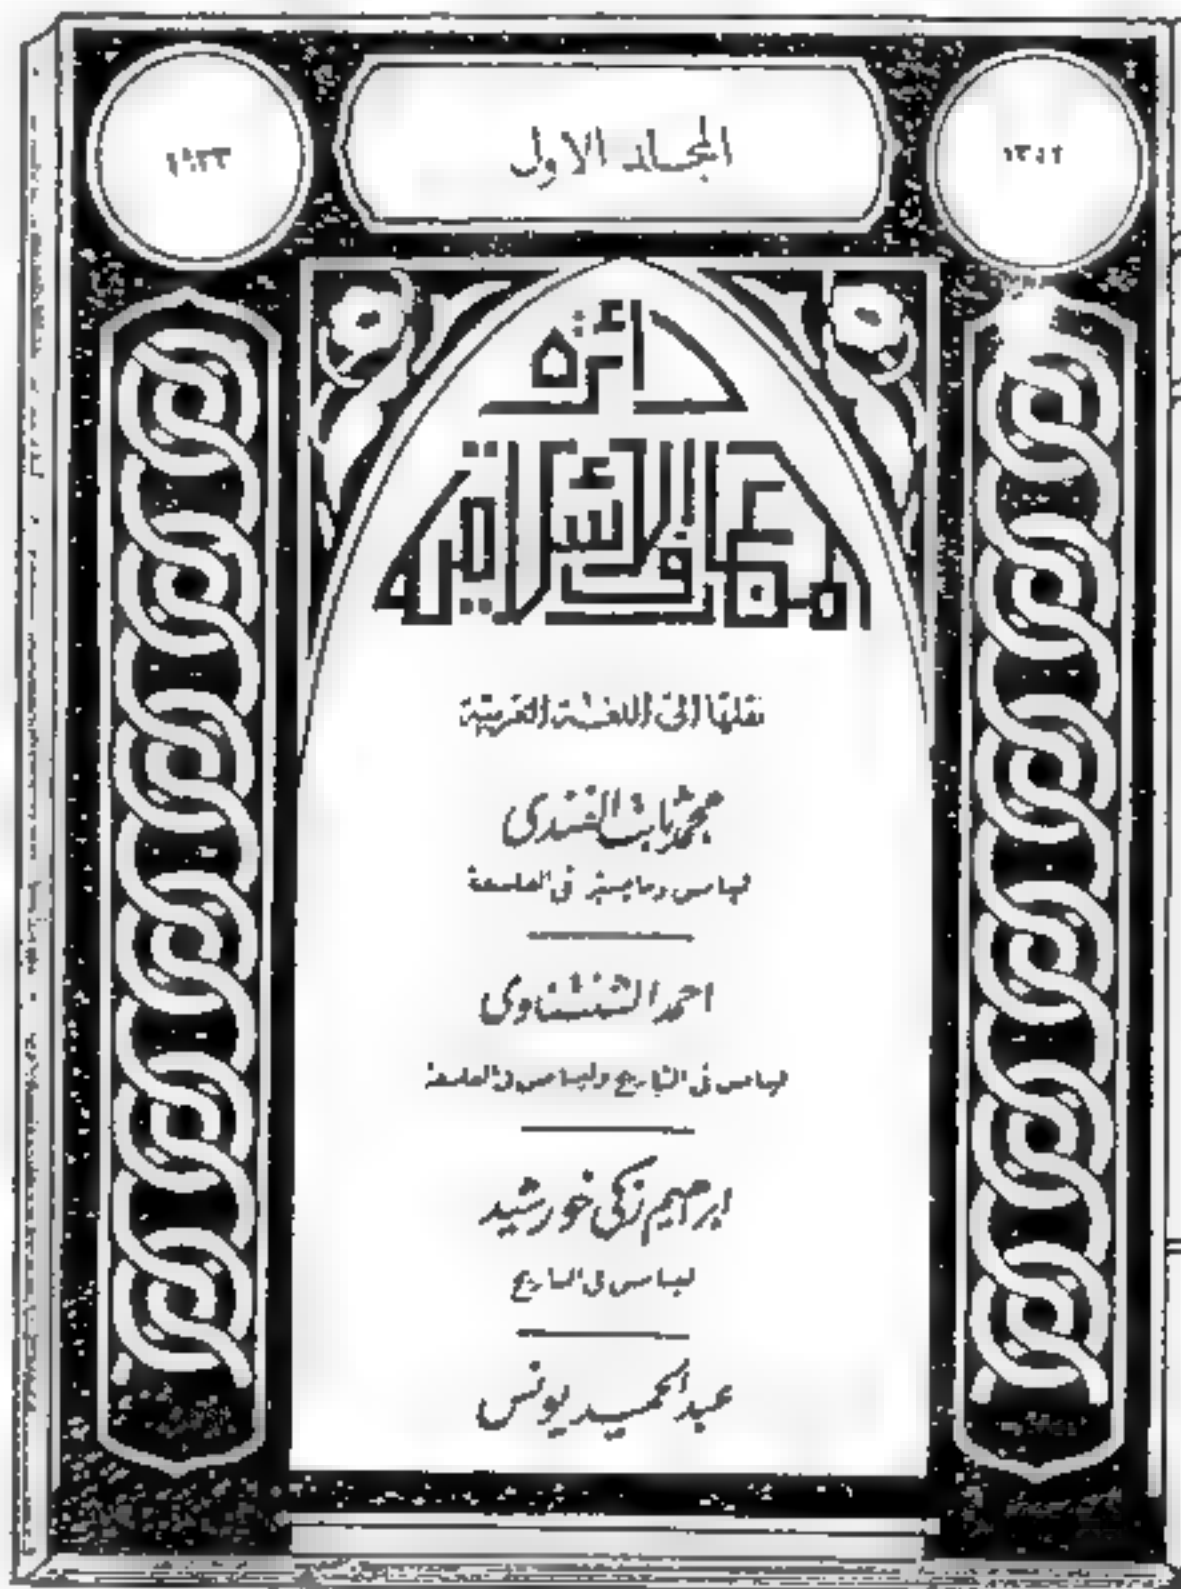 ١٩٣٣
المجلد الاول
دائرة
المعارف الإسلامية
نقلها إلى اللغة العربية
محمد ثابت الفندى
ليسانس وماجستير فى الفلسفة
احمد الشنتناوى
ليسانس فى التاريخ وليسانس فى الفلسفة
ابرهيم زكى خورشيد
ليسانس فى التاريخ
عبد الحميد يونس